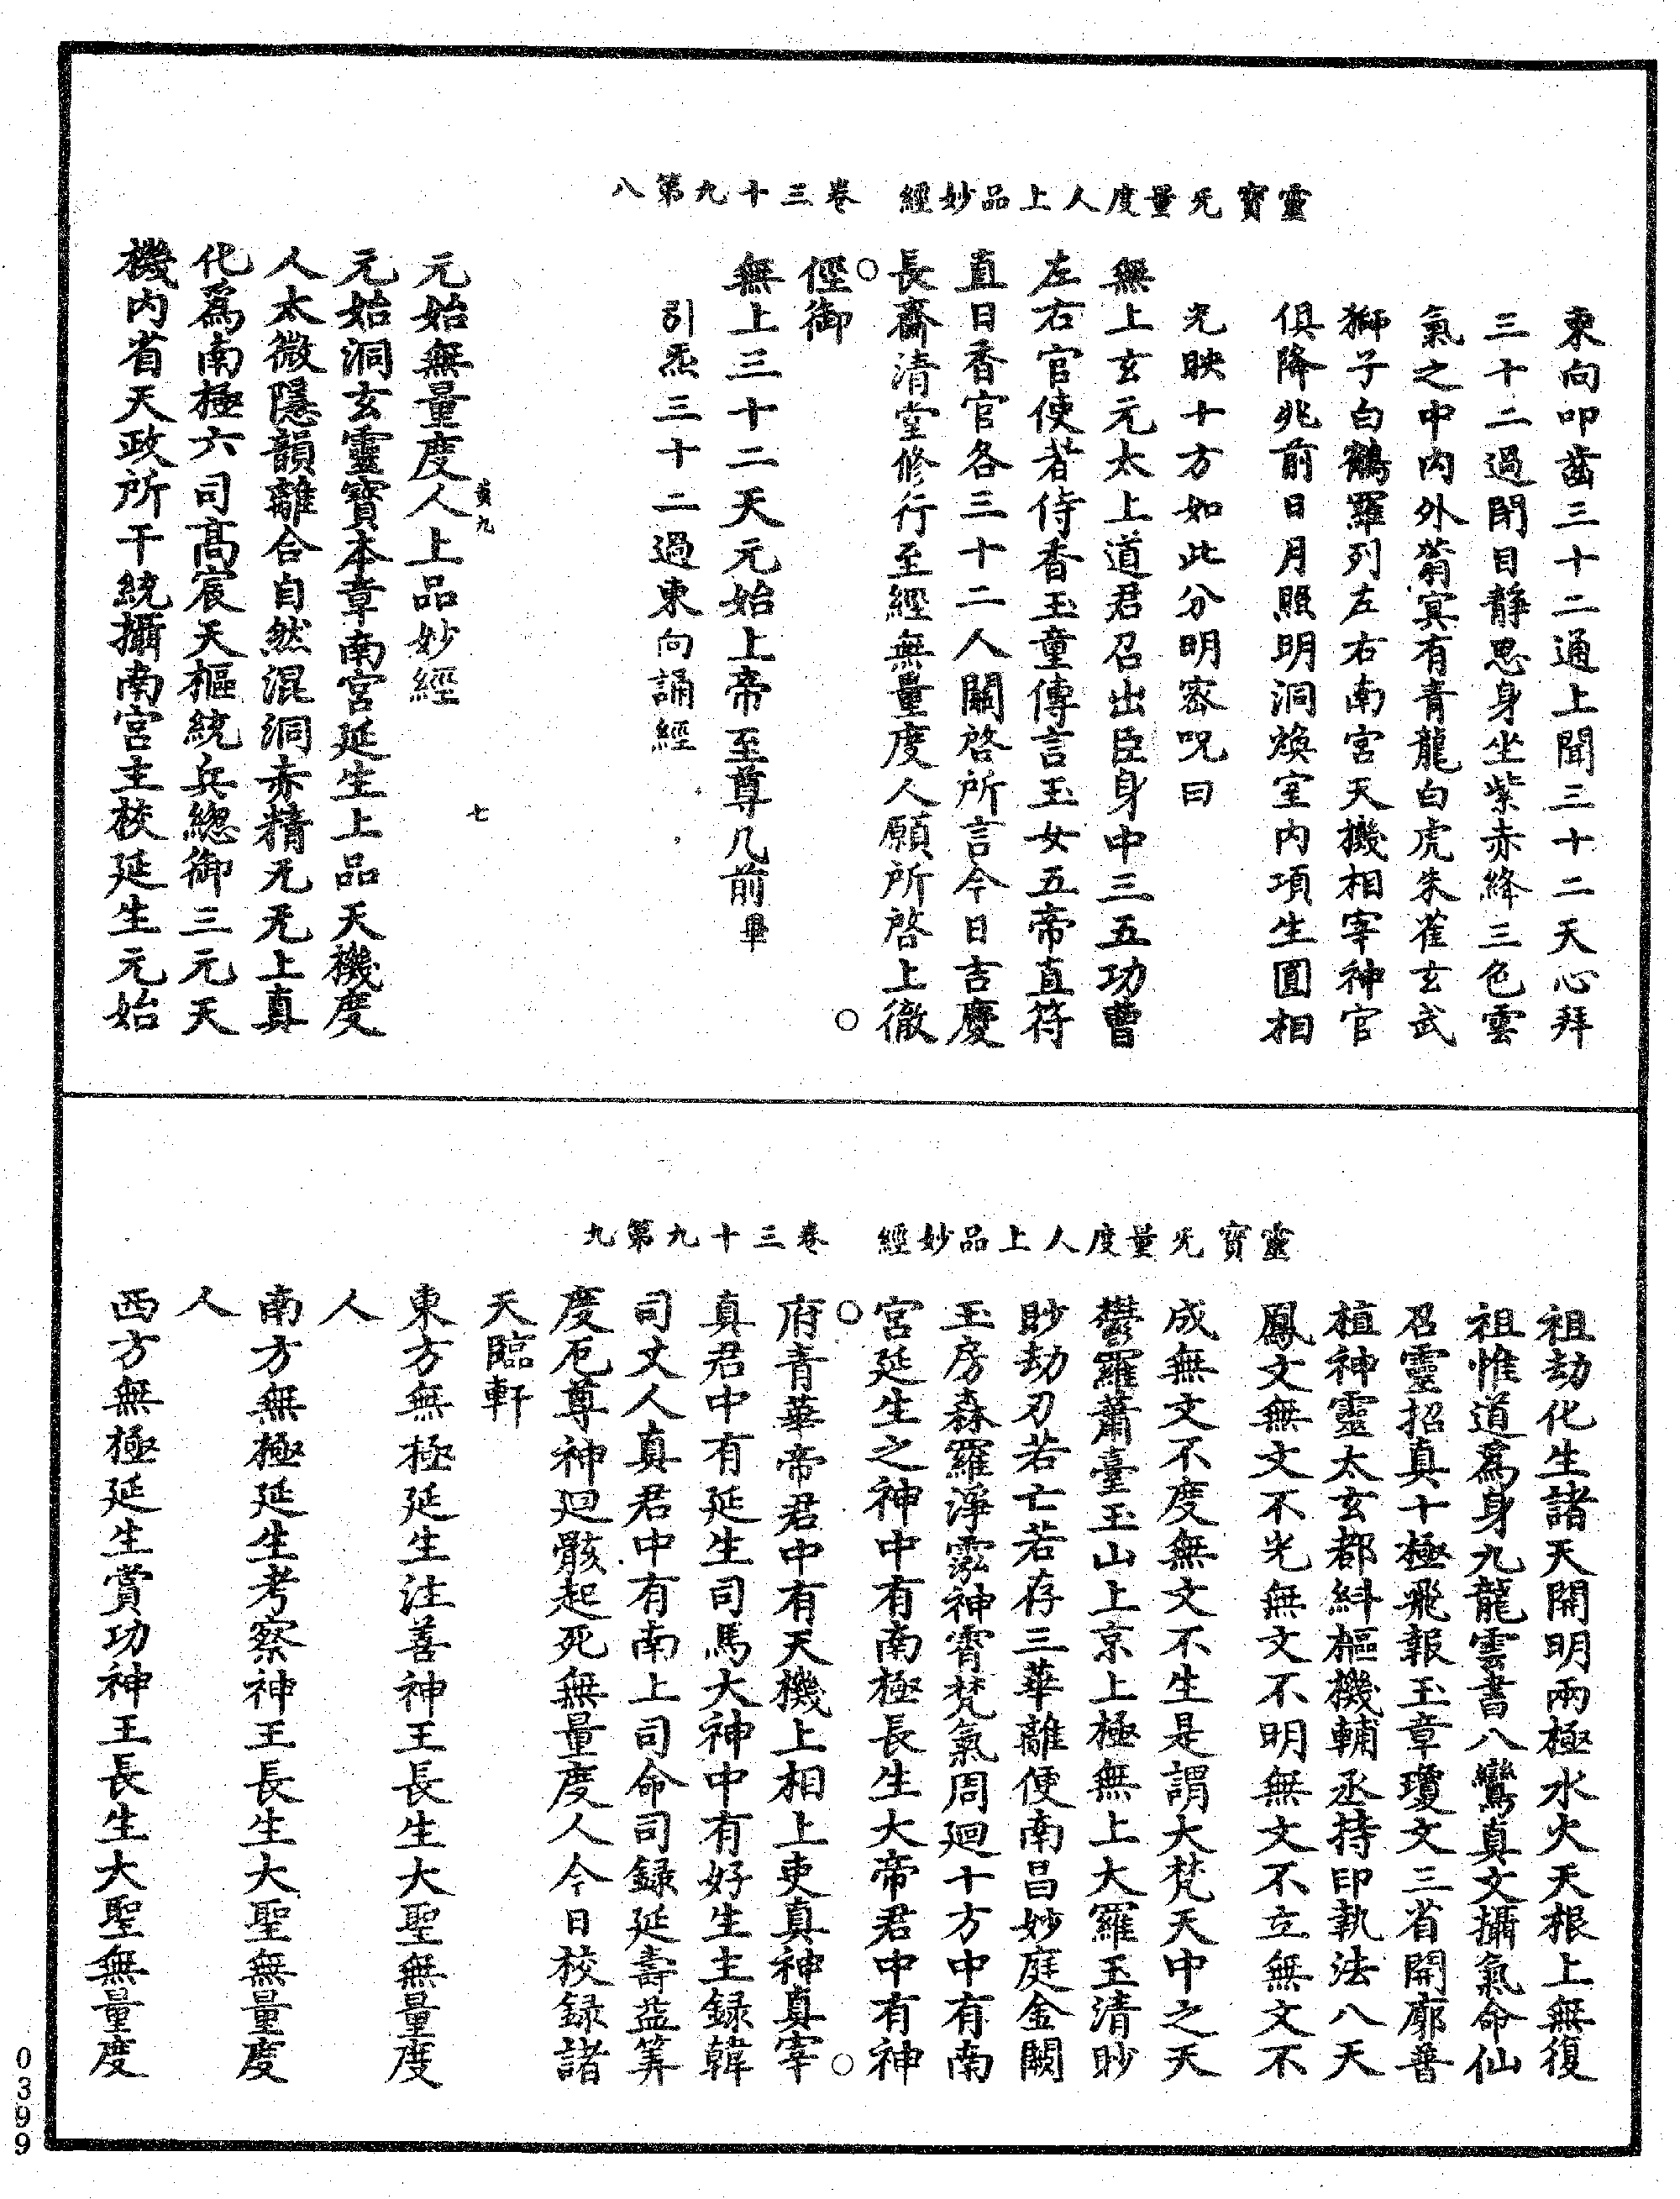 靈寶旡量度人上品妙經　卷三十九第八
東向叩齒三十二通上聞三十二天心拜
三十二過閉目靜思身坐紫赤絳三色雲
氣之中内外蓊冥有青龍白虎朱雀玄武
獅子白鶴羅列左右南宮天機相宰神官
俱降兆前日月照明洞煥室内項生圓相
光映十方如此分明密呪曰
無上玄元太上道君召出臣身中三五功曹
左右官使者侍香玉童傳言玉女五帝直符
直日香官各三十二人關啓所言今日吉慶
長齋清堂修行至經無量度人願所啓上徹
○
徑御
無上三十二天元始上帝至尊几前畢
引炁三十二過東向誦經
黄九　七
元始無量度人上品妙經
元始洞玄靈寶本章南宮延生上品天機度
人太微隱韻離合自然混洞赤精旡旡上真
化爲南極六司高宸天樞統兵總御三元天
機内省天政所干統攝南宮主校延生元始
靈寶旡量度人上品妙經　卷三十九第九
祖劫化生諸天開明兩極水火天根上無復
祖惟道爲身九龍雲書八鸞真文攝氣命仙
召靈招真十極飛報玉章瓊文三省開廓普
植神靈太玄都糾樞機輔丞持印執法八天
鳳文無文不光無文不明無文不立無文不
成無文不度無文不生是謂大梵天中之天
鬱羅蕭臺玉山上京上極無上大羅玉清眇
眇劫刃若亡若存三華離便南昌妙庭金闕
玉房森羅淨霐神霄梵氣周廻十方中有南
宮延生之神中有南極長生大帝君中有神
○
府青華帝君中有天機上相上吏真神真宰
真君中有延生司馬大神中有好生主録韓
司丈人真君中有南上司命司録延壽益筭
度厄尊神廻骸起死無量度人今日校録諸
天臨軒
東方無極延生注善神王長生大聖無量度
人
南方無極延生考察神王長生大聖無量度
人
西方無極延生賞功神王長生大聖無量度
0399